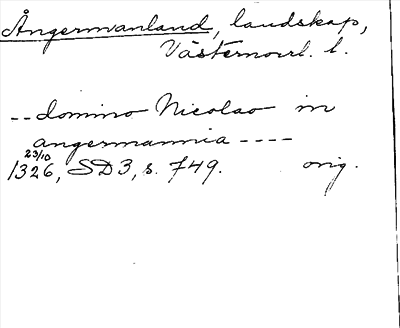 Ångermanland, landskap,
Västernorrl. l.
-- domino Nicolao in
angermannia ----
23/10
1326, SD3, s. 749. orig.